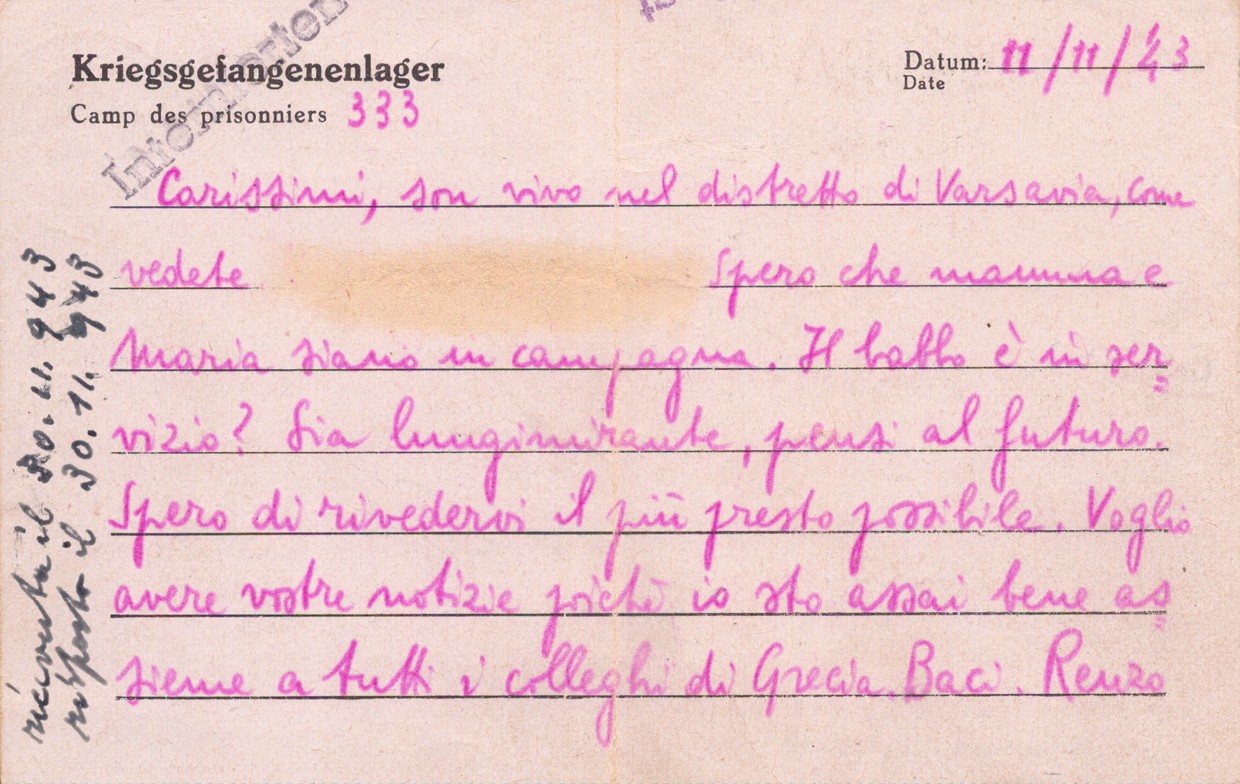 Kriegsgefangenenlager
Camp des prisonniers 333
Datum: 11/11/43
Date
Internierten
Carissimi, son vivo nel distretto di Varsavia, come
vedete Spero che mamma e
Maria siano in campagna. Il babbo è in ser=
vizio? Sia lungimirante, pensi al futuro.
Spero di rivedervi il più presto possibile. Voglio
avere vostre notizie poichè io sto assai bene as=
sieme a tutti i colleghi di Grecia. Baci. Renzo
ricevuta il 30.11.943
risposto il 30.11.943